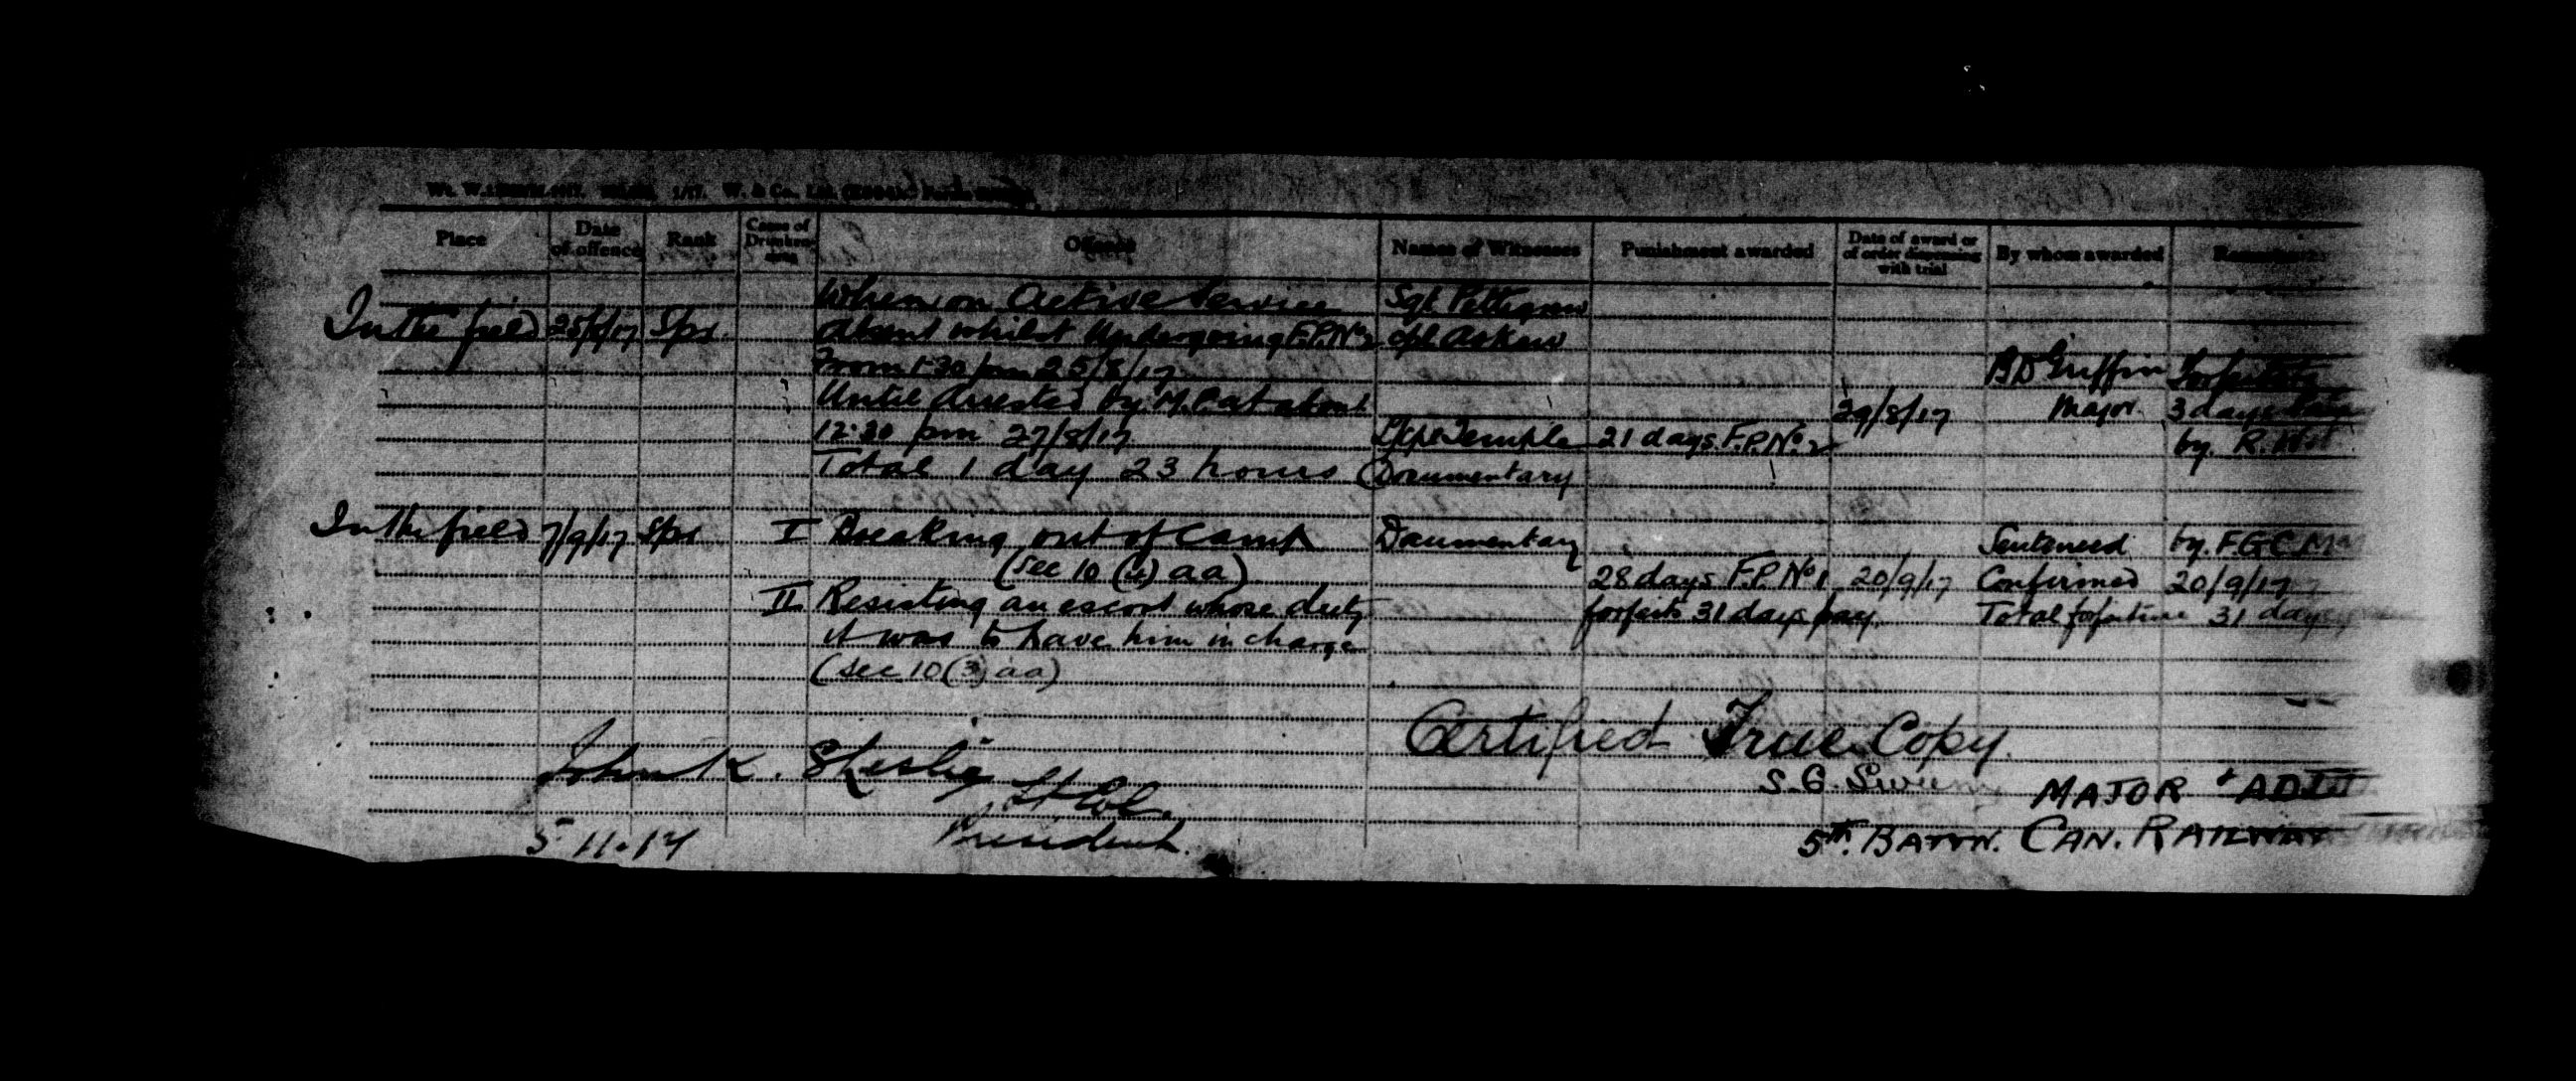 Place Date of offence Rank Cases of Drunkenness Offence Names of Witnesses Punishment awarded Date of award or of order dispensing with trial By whom awarded
When on Active Service Sgt Pettigrew
In the field 25/8/17 Spr absent whilst Undergoing F.P. No 2 Cpl Askew
From 1.30 pm 25/8/17 Griffin
Until Arrested by M.P. at about 29/8/17 Major 3 days
12.30 pm 27/8/17 Temple 21 days F.P. No. 2 by R.
Total 1 day 23 hours Documentary
In the field 7/9/17 Spr I Breaking out of Camp Documentary Sentenced by F.G.C.M.
(Sec 10 (4) aa) 28 days F.P. No 1 20/9/17 Confirmed 20/9/17
II Resisting an escort whose duty forfeits 31 days pay. Total forfeiture 31 days
it was to have him in charge
(Sec 10 (3) aa)
Certified True Copy.
John K. S. MAJOR & ADJT
Lt Col. 5th. BATTN. CAN. RAILWAY
5.11.17 President.